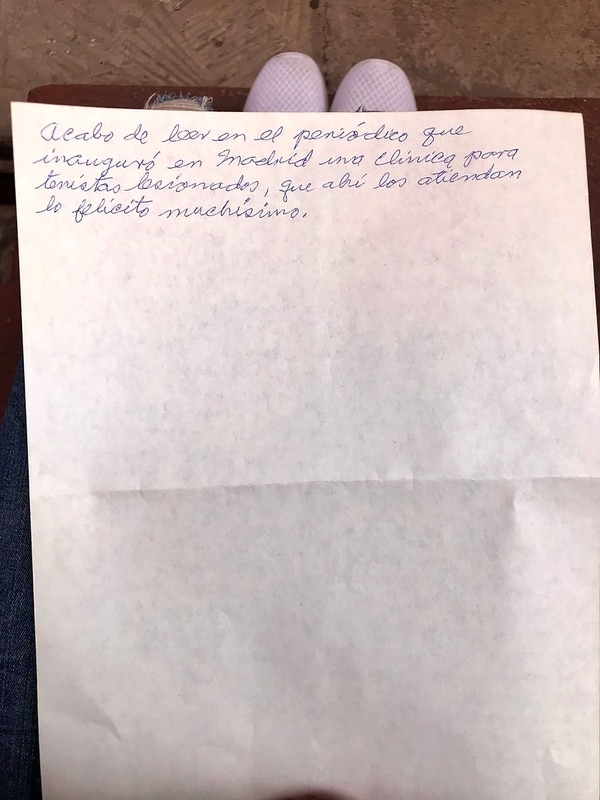 Acabo de leer en el periódico que
inauguró en Madrid una clínica para
tenistas lesionados, que ahí los atiendan
lo felicito muchísimo.